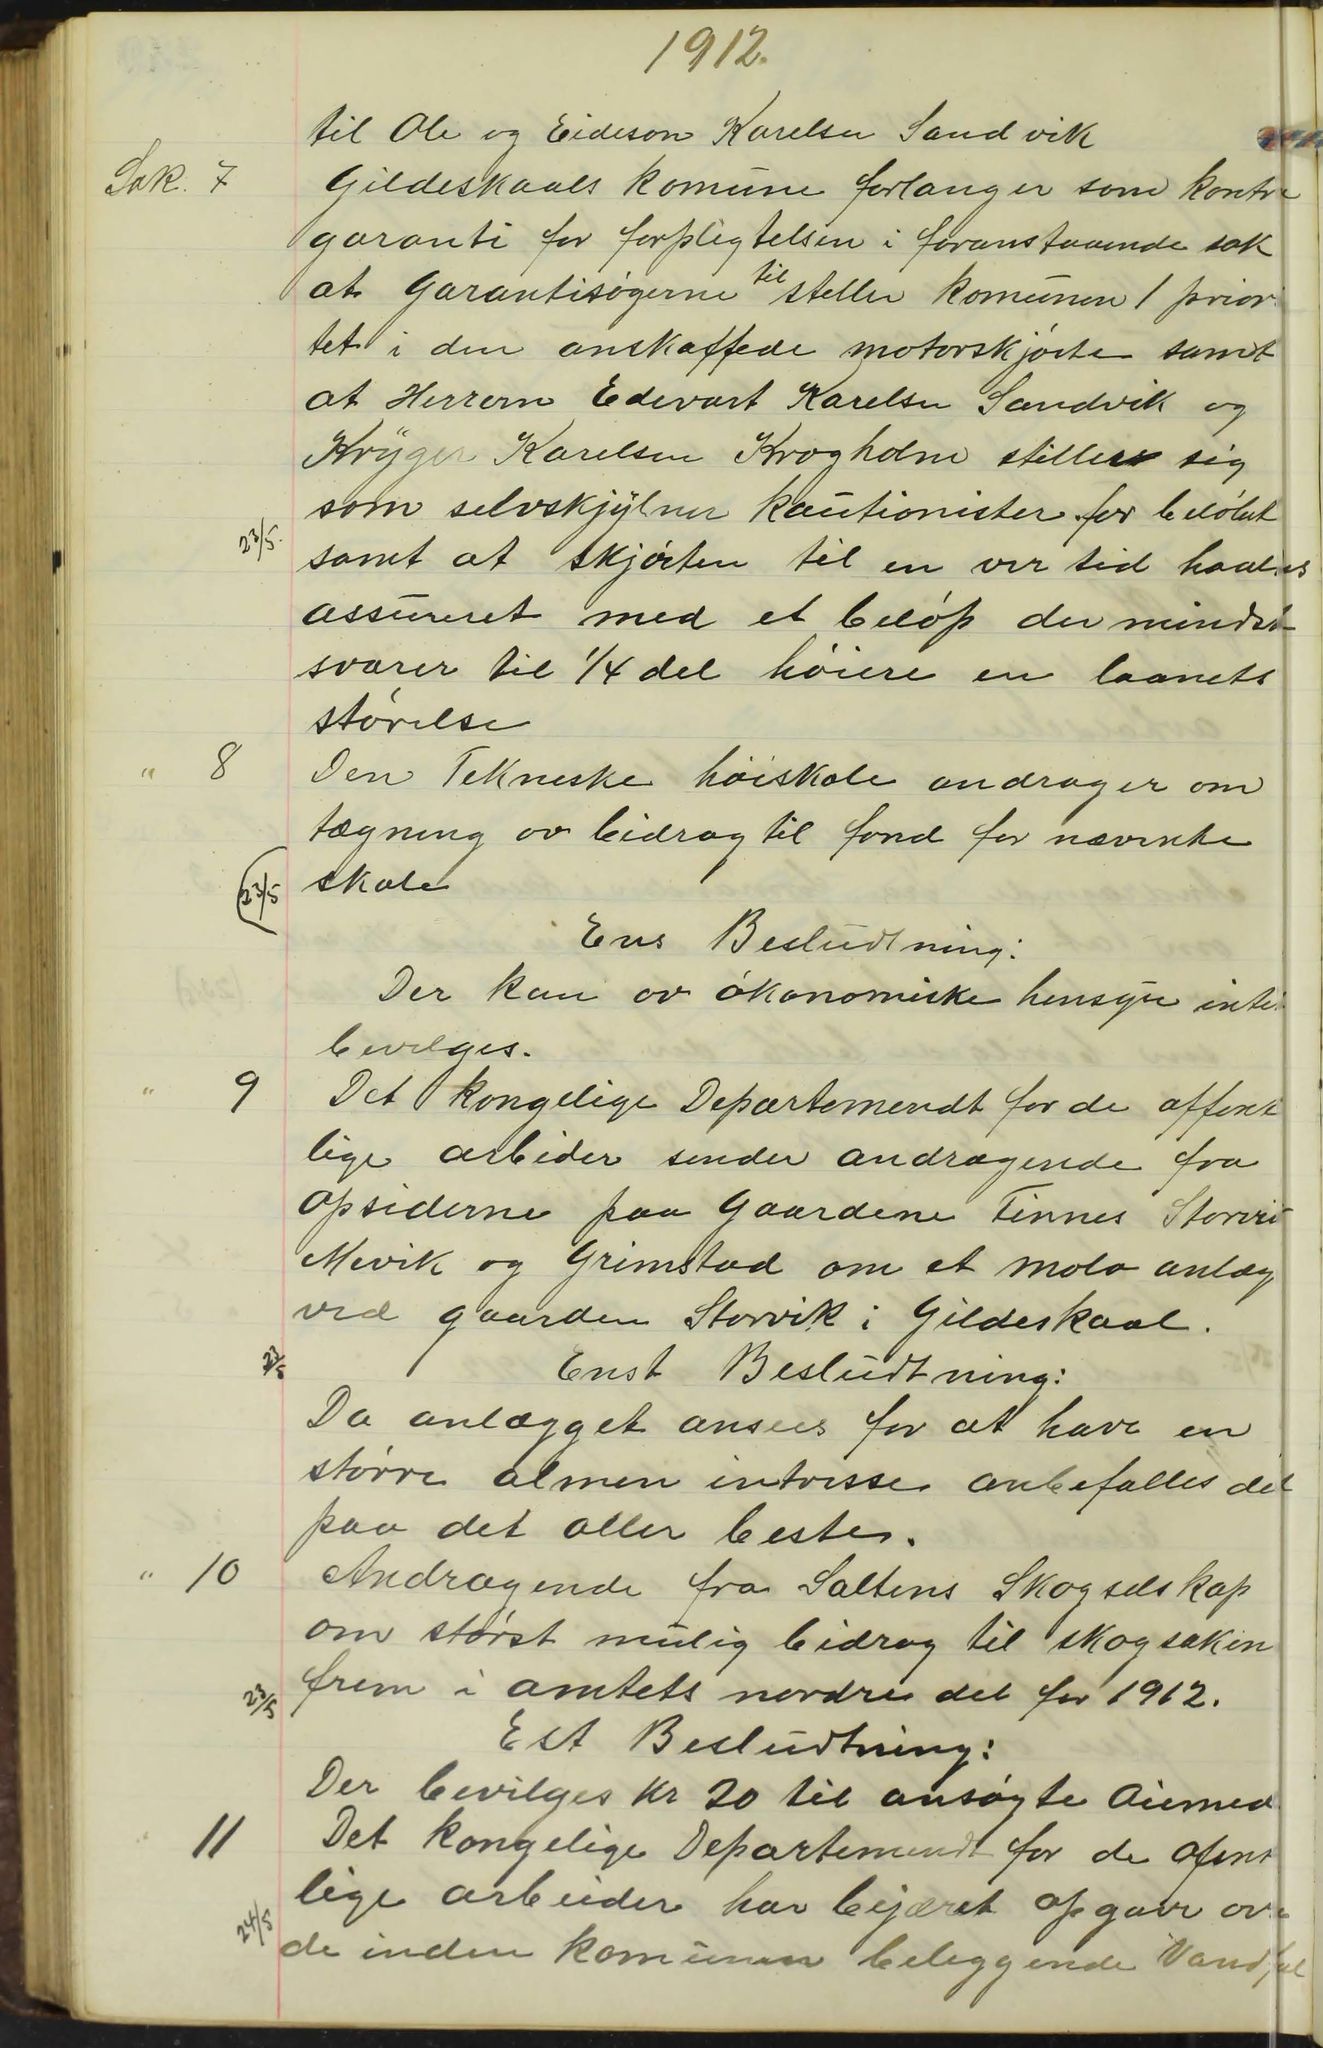 1912.
til Ole og Eideson Karelsen Sandvik
Sak. 7 Gildeskaals komune forlanger som kontra
garanti for forpligtelsen i foranstaaende sak
at Garantisøgerne til steller komunen 1 prior
tet i den anskaffede motorskjøite samt
at Herrern Edevart Karelsen Sandvik og
Krüger Karelsen Krogholm stiller sig
som selvskjylner kautionister for beløbet
23/5. samt at skjøiten til en ver tid haaldes
assureret med et beløp der mindst
svarer til 1/4 del høiere en laanets
størelse
" 8 Den Tekneske høiskole andrager om
tegning av bidrag til fond for nævnte
23/5 skole
Ens Besludtning:
Der kan av økonomiske hensyn intet
bevilges.
" 9 Det kongelige Departemendt for de offent
lige arbeider sender andragende fra
opsiderne paa Gaardene Finnes Storvik
Mevik og Grimstad om et molo anlæg
ved gaarden Storvik i Gildeskaal.
23/5 Enst Besludtning:
Da anlægget ansees for at have en
større almen intresse anbefalles det
paa det aller beste.
" 10 Andragende fra Saltens Skogselskap
om størst mulig bidrag til skogsaken
23/5 frem i amtets nordre del for 1912.
Est Besludtning:
Der bevilges kr 20 til ansøgte Øiemed
" 11 Det kongelige Departemendt for de ofent
lige arbeider har bejæret opgave over
24/5 de inden komunen beleggende Vandfal